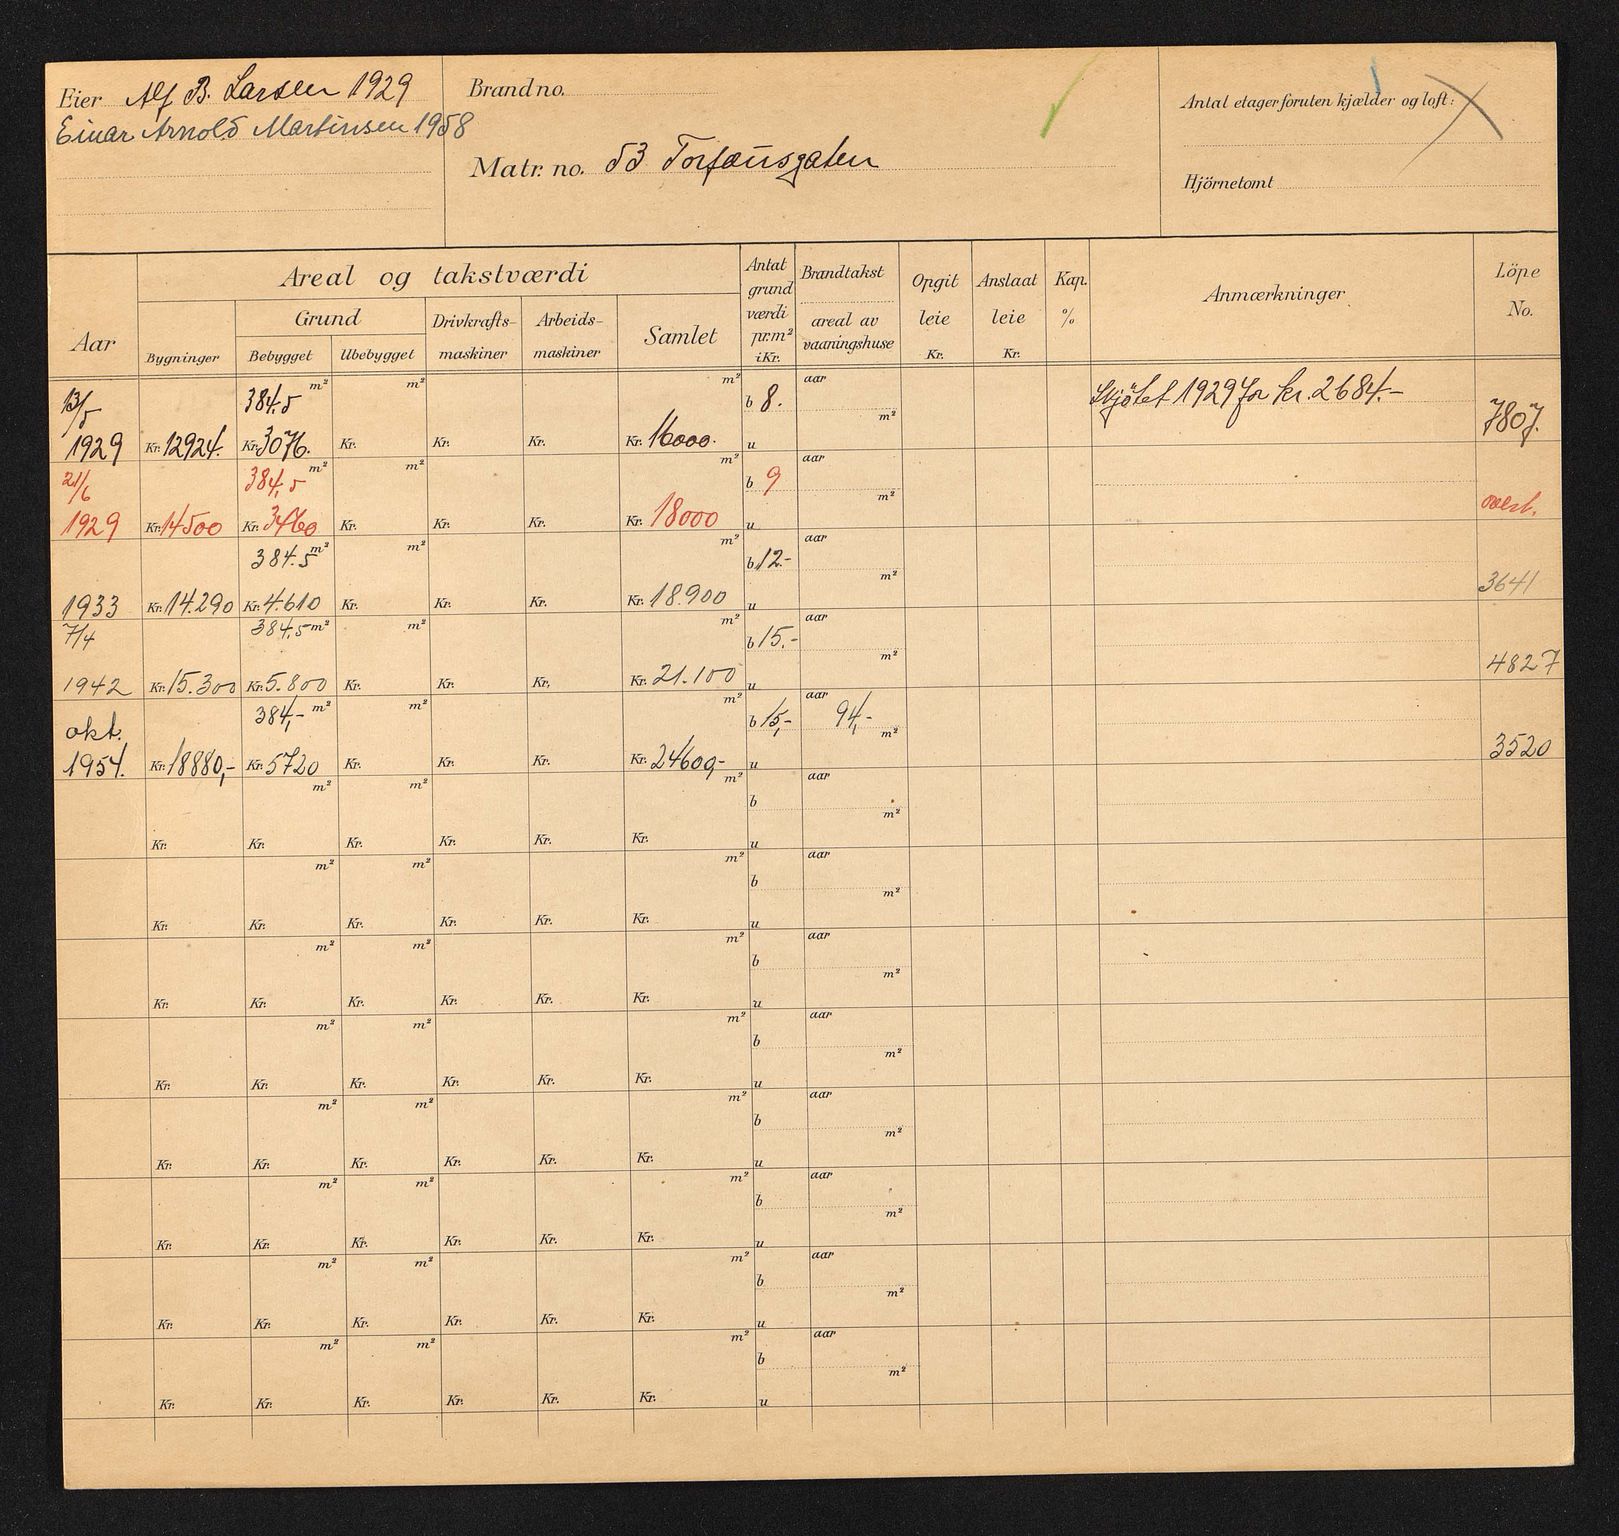 Eier Alf B. Larsen 1929
Einar Arnold Martinsen 1958
Brand no.
Matr. no. 53 Torfæusgaten
Antal etager foruten kjælder og loft:
Hjörnetomt
Aar
Areal og takstværdi
Bygninger
Grund
Bebygget Ubebygget
Drivkrafts-
maskiner
Arbeids-
maskiner
Samlet
Antat
grund
værdi
pr.m²
i Kr.
Brandtakst
areal av
vaaningshuse
Opgit
leie
Kr.
Anslaat
leie
Kr.
Kap.
%
Anmærkninger
Löpe
No.
13/5 384.5 m² m² m² b 8. aar Skjötet 1929 for kr. 2684.-
1929 Kr. 12924. Kr. 3076. Kr. Kr. Kr. Kr. 16000. u m² 7807.
21/6 384,5 m² m² m² b 9 aar
1929 Kr. 14500 Kr. 3460 Kr. Kr. Kr. Kr. 18000 u m² overt.
384.5 m² m² m² b 12.- aar
1933 Kr. 14.290 Kr. 4.610 Kr. Kr. Kr. Kr. 18.900 u m² 3641
7/4 384,5 m² m² m² b 15.- aar
1942 Kr. 15.300 Kr. 5.800 Kr. Kr. Kr. Kr. 21.100 u m² 4827
okt. 384,- m² m² m² b 15,- aar 94,-
1954. Kr. 18880,- Kr. 5720 Kr. Kr. Kr. Kr. 24600,- u m² 3520
m² m² m² b aar
Kr. Kr. Kr. Kr. Kr. Kr. u m²
m² m² m² b aar
Kr. Kr. Kr. Kr. Kr. Kr. u m²
m² m² m² b aar
Kr. Kr. Kr. Kr. Kr. Kr. u m²
m² m² m² b aar
Kr. Kr. Kr. Kr. Kr. Kr. u m²
m² m² m² b aar
Kr. Kr. Kr. Kr. Kr. Kr. u m²
m² m² m² b aar
Kr. Kr. Kr. Kr. Kr. Kr. u m²
m² m² m² b aar
Kr. Kr. Kr. Kr. Kr. Kr. u m²
m² m² m² b aar
Kr. Kr. Kr. Kr. Kr. Kr. u m²